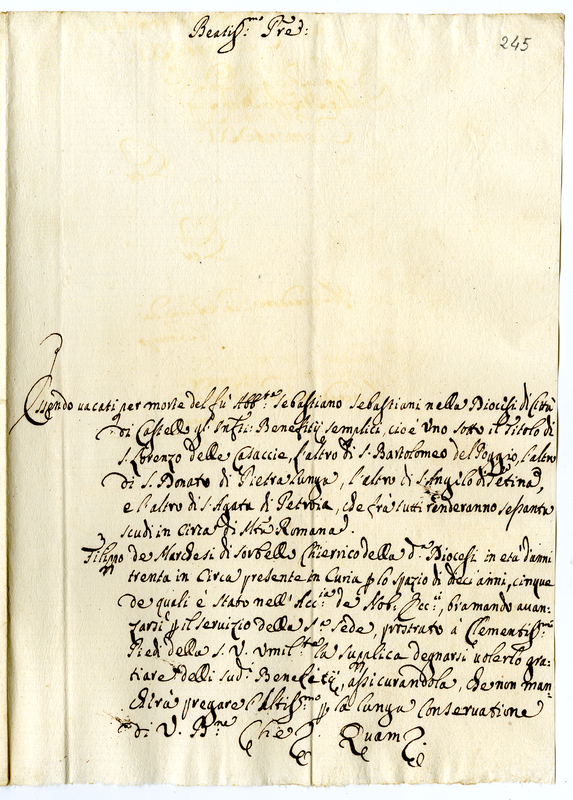 Beatiss:mo Pre:
245
Essendo vacati per morte del fù Abb:te Sebastiano Sebastiani nella Diocesi di Città
di Castello gl'Infri: Beneficij semplici, cioè Uno sotto il Titolo di
S. Lorenzo delle Casaccie, l'altro di S. Bartolomeo del Poggio, l'altro
di S. Donato di Pietra lunga, l'altro di S. Angelo di Setina,
e l'altro di S. Agata di Petroia, che frà tutti renderanno sessanta
scudi in Circa di Mta Romana.
Filippo de Marchesi di Sorbello Chierico della d:a Diocesi in età d'anni
trenta in Circa presente in Curia p lo spazio di dieci anni, cinque
de quali è stato nell'Acc:ia de Nob: Ecc:ci, bramando avan-
zarsi p il servizio della S:a Sede, prostrato à Clementiss:mi
Piedi della S. V. Umil:te la supplica degnarsi volerlo gra-
tiare delli sud:i Beneficij, assicurandola, che non man-
cherà pregare l'Altiss:mo p la lunga Conservatione
di V. B:ne Che Quam